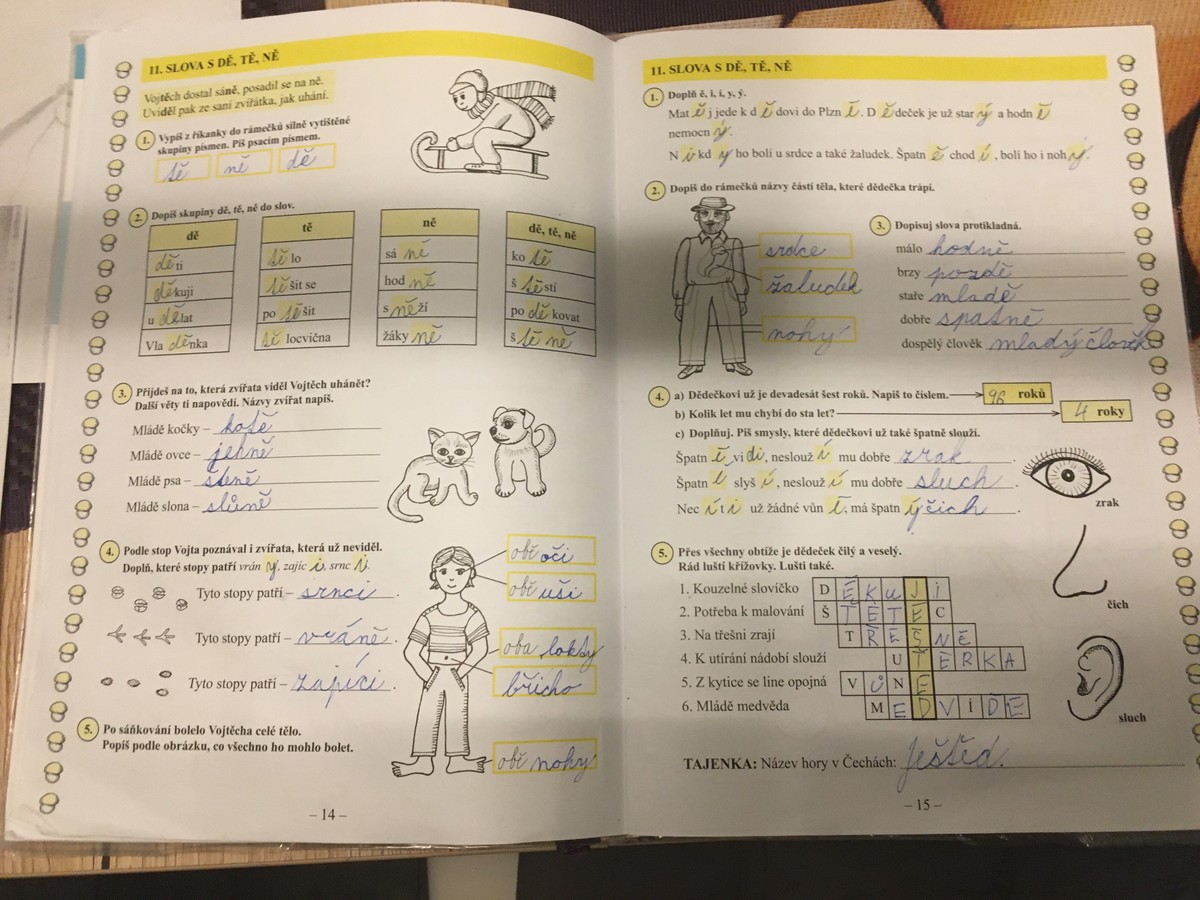 11. SLOVA S DĚ, TĚ, NĚ
Vojtěch dostal sáně, posadil se na ně.
Uviděl pak ze saní zvířátka, jak uhání.
1. Vypiš z říkanky do rámečků silně vytištěné
skupiny písmen. Piš psacím písmem.
tě ně dě
2. Dopiš skupiny dě, tě, ně do slov.
dě tě ně dě, tě, ně
děti tělo sáně kotě
děkuji těšit se hodně štěstí
udělat potěšit sněží poděkovat
Vladěnka tělocvična žákyně štěně
3. Přijdeš na to, která zvířata viděl Vojtěch uhánět?
Další věty ti napovědí. Názvy zvířat napiš.
Mládě kočky – kotě
Mládě ovce – jehně
Mládě psa – štěně
Mládě slona – slůně
4. Podle stop Vojta poznával i zvířata, která už neviděl.
Doplň, které stopy patří vrány, zajíci, srnci.
Tyto stopy patří – srnci.
Tyto stopy patří – vráně.
Tyto stopy patří – zajíci.
obě oči
obě uši
oba lokty
břicho
obě nohy
5. Po sáňkování bolelo Vojtěcha celé tělo.
Popiš podle obrázku, co všechno ho mohlo bolet.
– 14 –
11. SLOVA S DĚ, TĚ, NĚ
1. Doplň ě, i, í, y, ý.
Matěj jede k dědovi do Plzně. Dědeček je už starý a hodně
nemocný.
Nikdy ho bolí u srdce a také žaludek. Špatně chodí, bolí ho i nohy.
2. Dopiš do rámečků názvy částí těla, které dědečka trápí.
srdce
žaludek
nohy
3. Dopisuj slova protikladná.
málo hodně
brzy pozdě
staře mladě
dobře špatně
dospělý člověk mladý člověk
4. a) Dědečkovi už je devadesát šest roků. Napiš to číslem. 96 roků
b) Kolik let mu chybí do sta let? 4 roky
c) Doplňuj. Piš smysly, které dědečkovi už také špatně slouží.
Špatně vidí, neslouží mu dobře zrak.
Špatně slyší, neslouží mu dobře sluch.
Necítí už žádné vůně, má špatný čich.
zrak
čich
sluch
5. Přes všechny obtíže je dědeček čilý a veselý.
Rád luští křížovky. Lušti také.
1. Kouzelné slovíčko DĚKUJI
2. Potřeba k malování ŠTĚTEC
3. Na třešni zrají TŘEŠNĚ
4. K utírání nádobí slouží UTĚRKA
5. Z kytice se line opojná VŮNĚ
6. Mládě medvěda MEDVÍDĚ
TAJENKA: Název hory v Čechách: Ještěd.
– 15 –